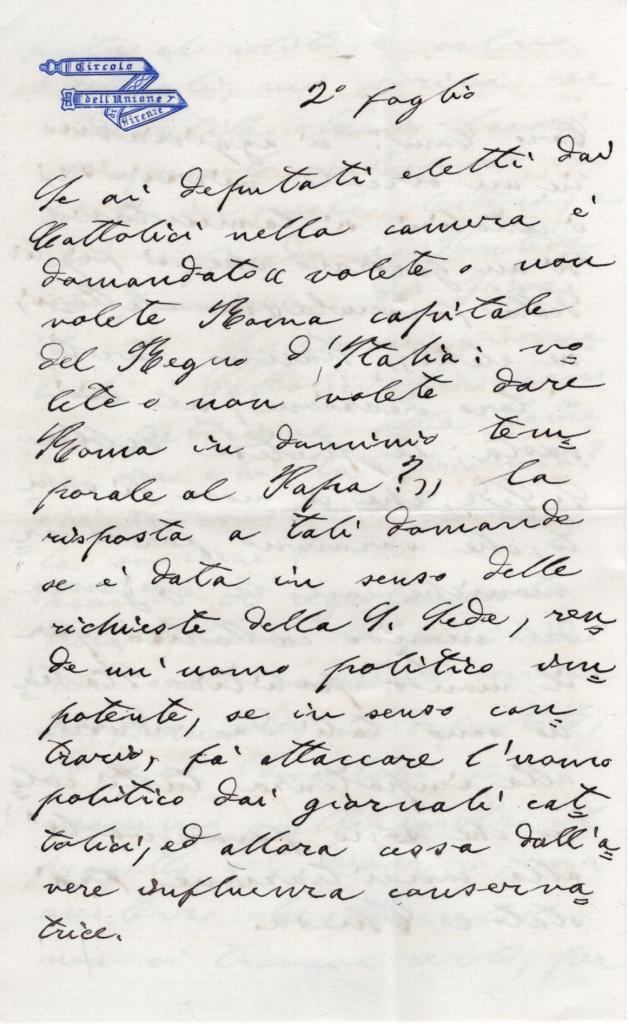 Circolo
dell'Unione
di Firenze
2° foglio
Se ai deputati eletti dai
Cattolici nella camera è
domandato « volete o non
volete Roma capitale
del Regno d'Italia: vo=
lete o non volete dare
Roma in dominio tem=
porale al Papa? » la
risposta a tali domande
se è data in senso delle
richieste della S. Sede, ren=
de un'uomo politico im=
potente, se in senso con=
trario, fà attaccare l'uomo
politico dai giornali cat=
tolici, ed allora cessa dall'a=
vere influenza conserva=
trice.